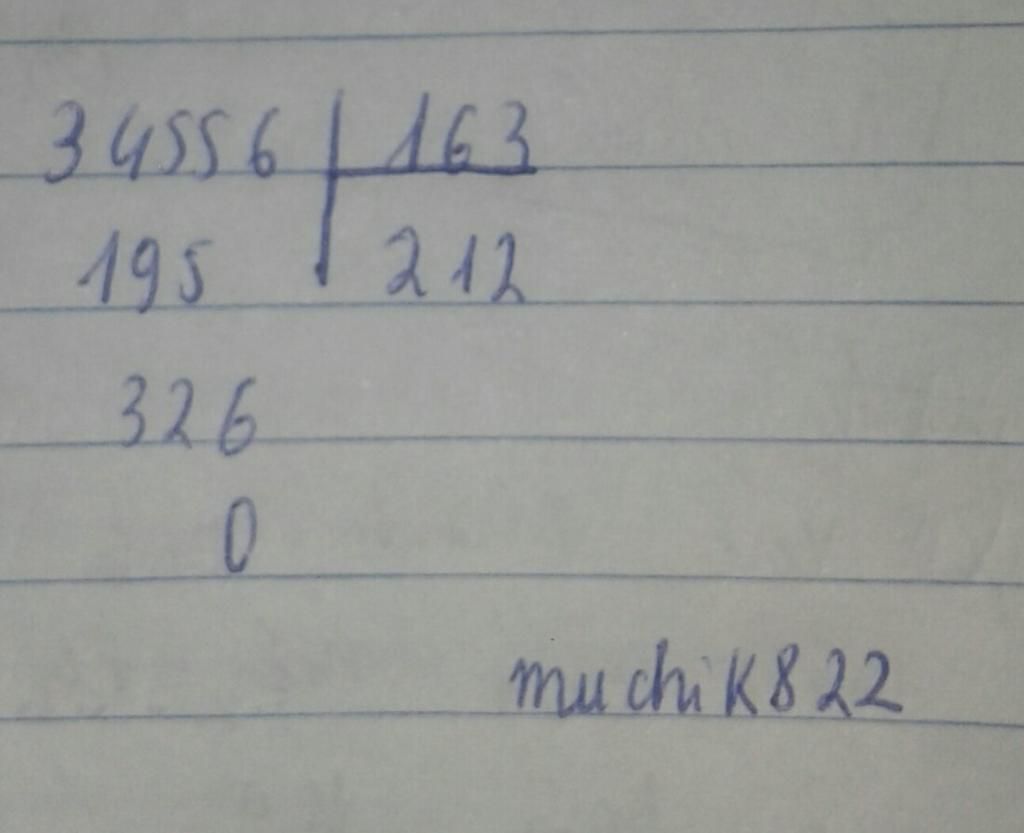 34556 163
195 212
326
0
muchik822